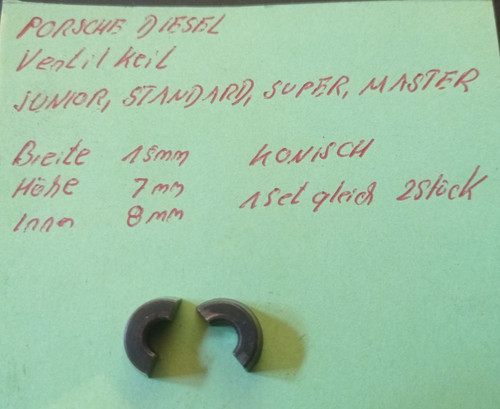 PORSCHE DIESEL
Ventil Keil
JUNIOR, STANDARD, SUPER, MASTER
Breite 15mm KONISCH
Höhe 7mm 1 Set gleich 2 Stück
Innen 8mm